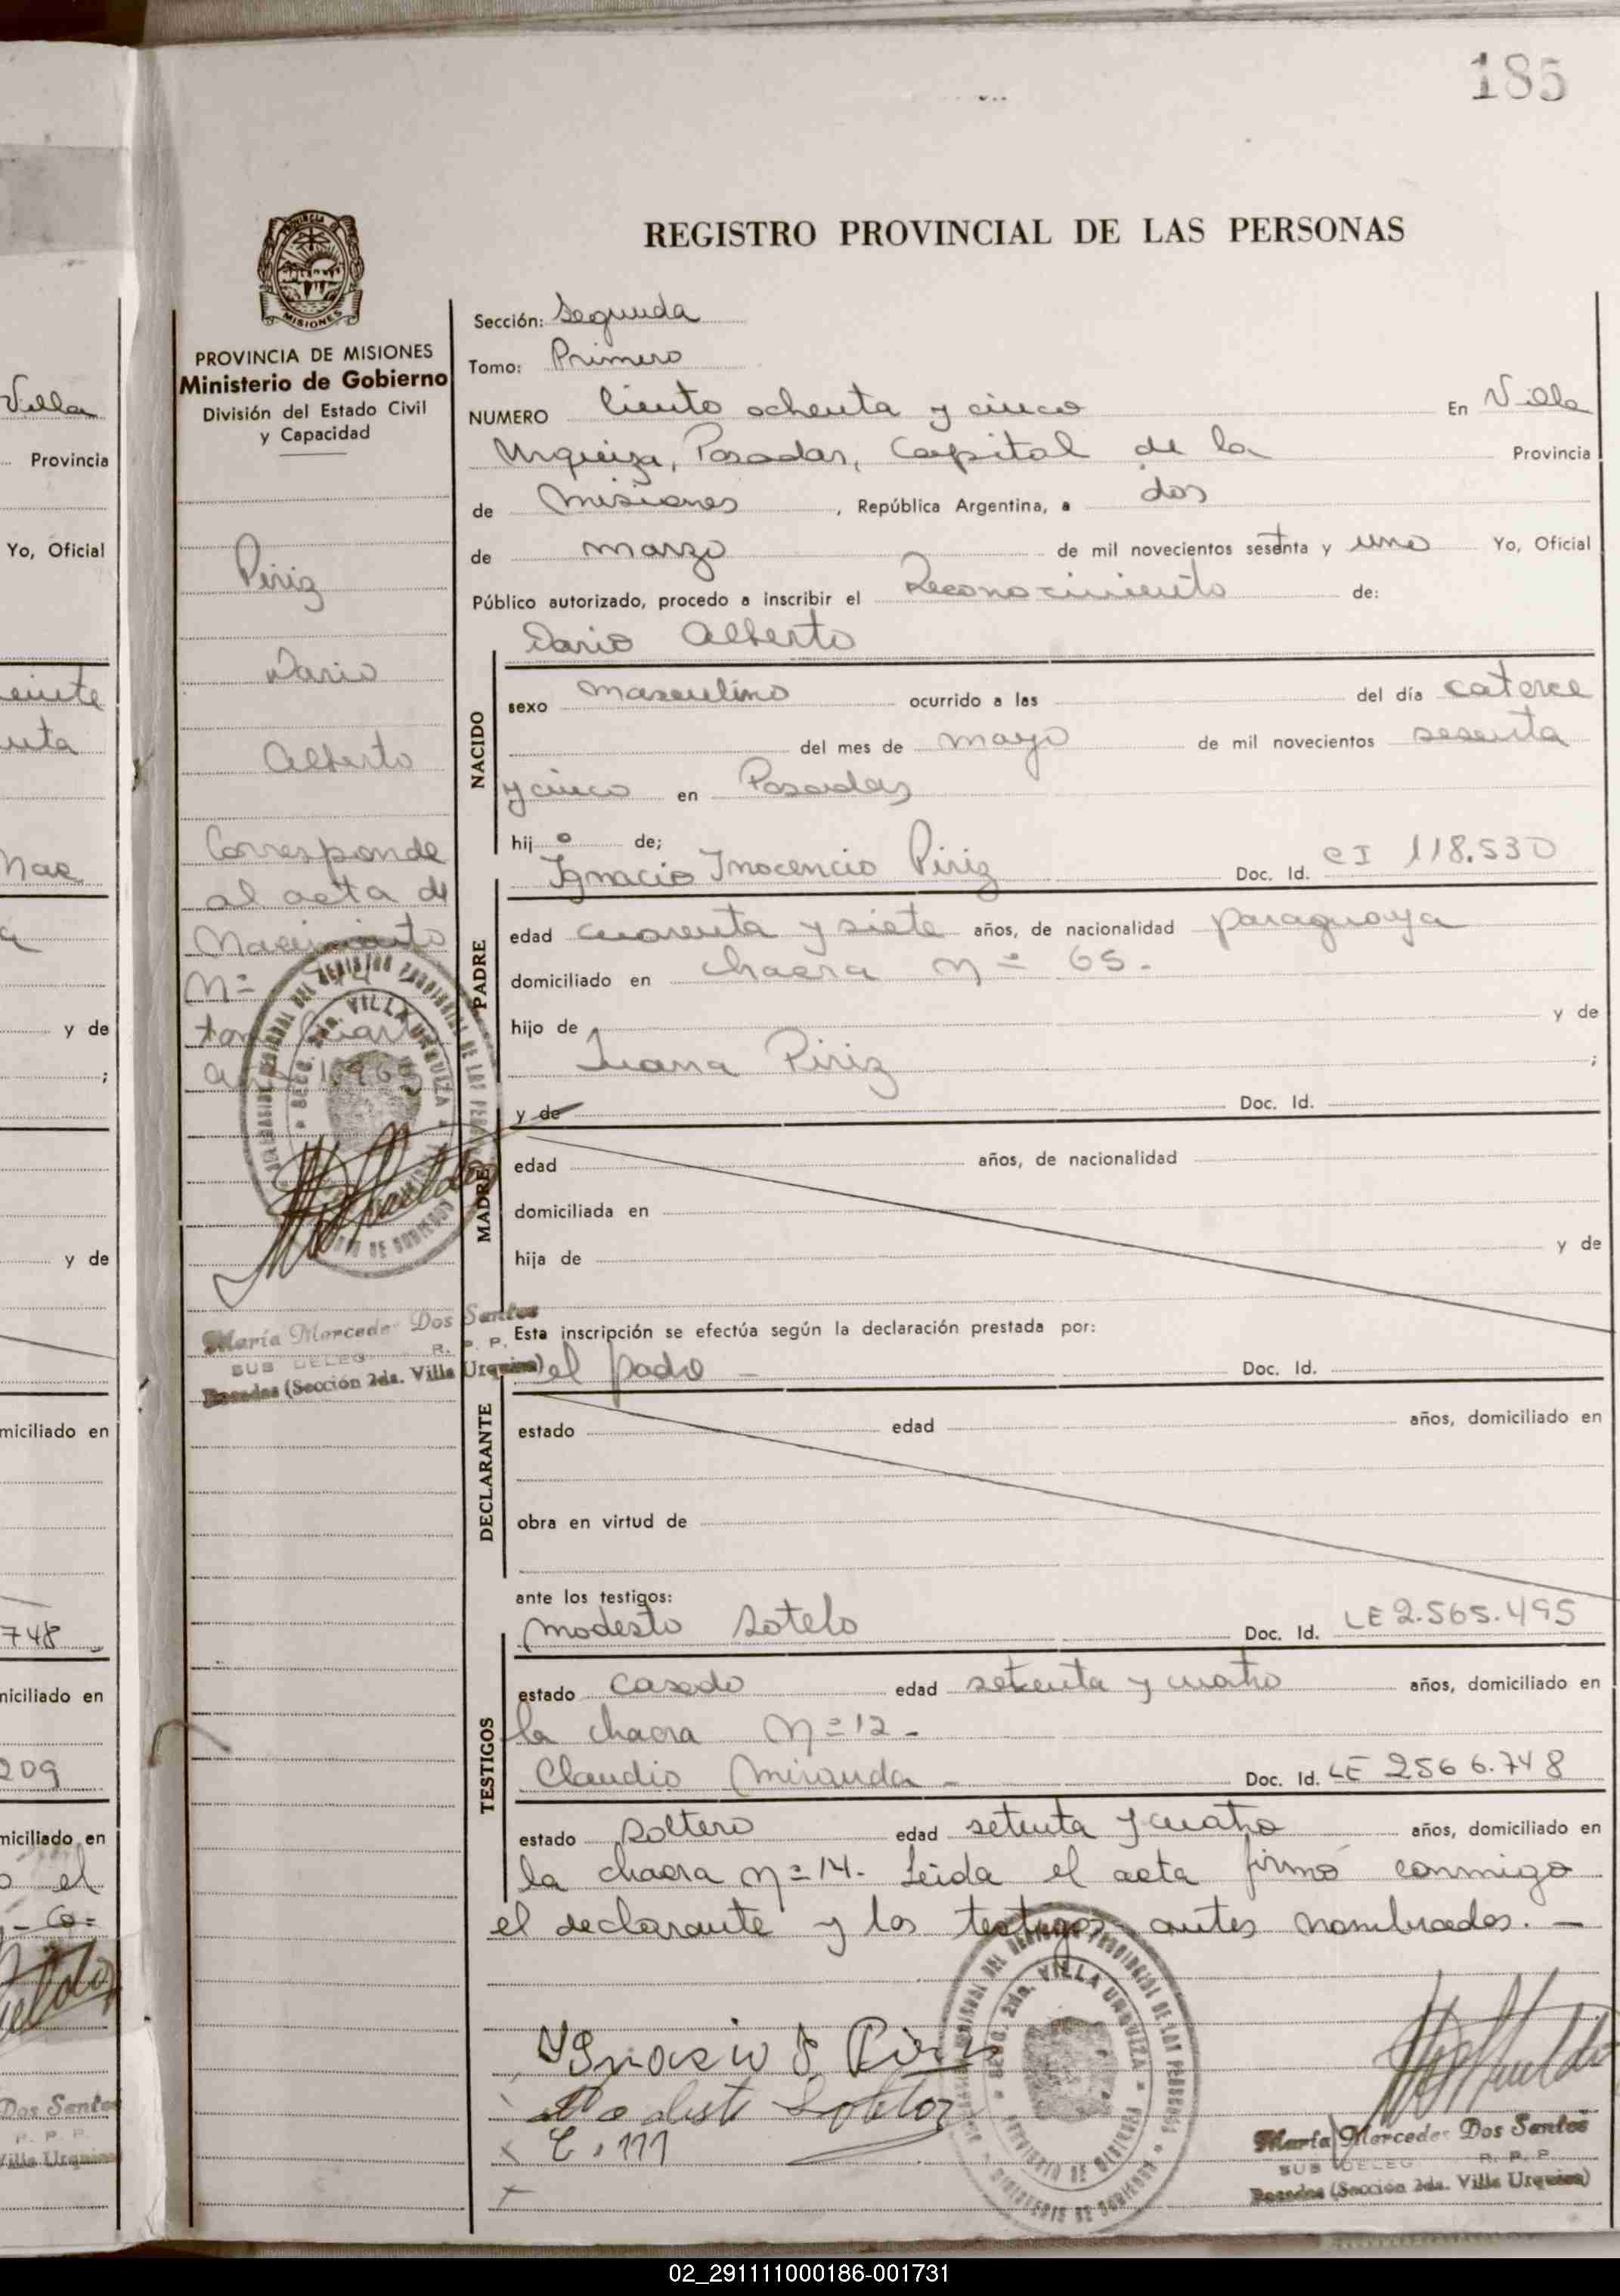 185
REGISTRO PROVINCIAL DE LAS PERSONAS
MISIONES
PROVINCIA DE MISIONES
Ministerio de Gobierno
División del Estado Civil
y Capacidad
Piriz
Dario
Alberto
Corresponde
al acta de
Nacimiento
Nº
María Mercedes Dos Santos
SUB DELEG. R. P. P.
Posadas (Sección 2da. Villa Urquiza)
Sección: Segunda
Tomo: Primero
NUMERO Ciento ochenta y cinco En Villa
Urquiza, Posadas, Capital de la Provincia
de Misiones, República Argentina, a dos
de marzo de mil novecientos sesenta y uno Yo, Oficial
Público autorizado, procedo a inscribir el Reconocimiento de:
Dario Alberto
NACIDO
sexo masculino ocurrido a las del día catorce
del mes de mayo de mil novecientos sesenta
y cinco en Posadas
hij o de;
Ignacio Inocencio Piriz Doc. Id. CI 118.530
PADRE
edad cuarenta y siete años, de nacionalidad paraguaya
domiciliado en chacra nº 65.
hijo de y de
Juana Piriz ;
y de Doc. Id.
MADRE
edad años, de nacionalidad
domiciliada en
hija de y de
Esta inscripción se efectúa según la declaración prestada por:
el padre - Doc. Id.
DECLARANTE
estado edad años, domiciliado en
obra en virtud de
ante los testigos:
Modesto Sotelo Doc. Id. LE 2.565.495
TESTIGOS
estado casado edad setenta y cuatro años, domiciliado en
la chacra Nº 12 -
Claudio Miranda - Doc. Id. LE 2566.748
estado soltero edad setenta y cuatro años, domiciliado en
la chacra nº 14. Leida el acta firmó conmigo
el declarante y los testigos antes nombrados. -
SECC. 2da. VILLA URQUIZA
María Mercedes Dos Santos
SUB DELEG. R. P. P.
Posadas (Sección 2da. Villa Urquiza)
Villa
Provincia
Yo, Oficial
y de
;
y de
miciliado en
748 -
niciliado en
209
miciliado en
el
Dos Santos
R. P. P.
Villa Urquiza
02_291111000186-001731